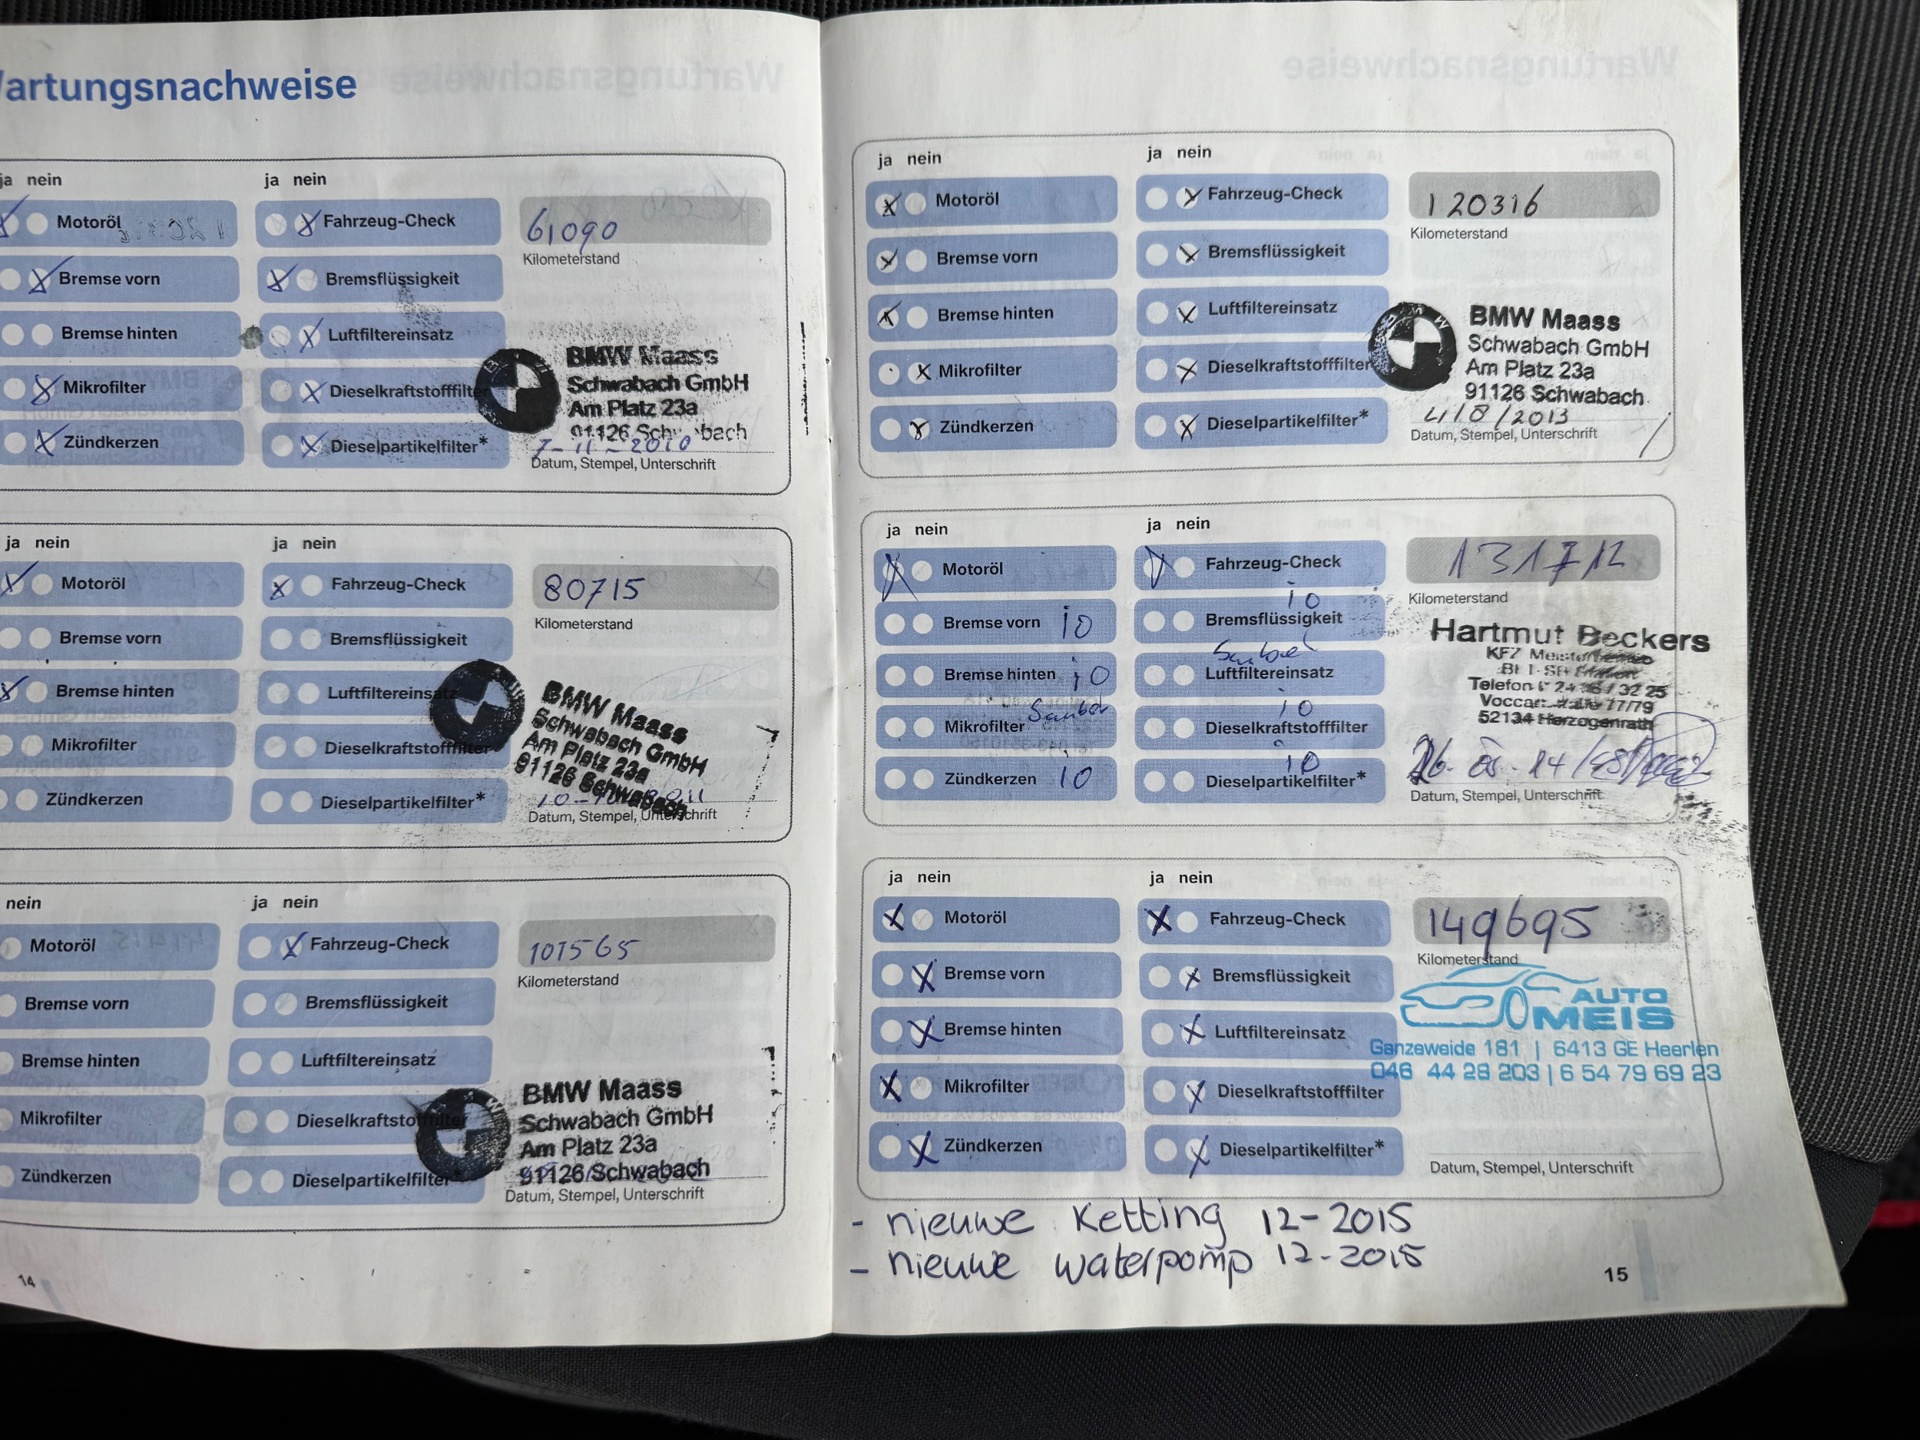 Wartungsnachweise
ja nein
ja nein
Motoröl
Fahrzeug-Check
61090
Bremse vorn
Bremsflüssigkeit
Kilometerstand
Bremse hinten
Luftfiltereinsatz
Mikrofilter
Dieselkraftstofffilter
Zündkerzen
Dieselpartikelfilter*
BMW Maass
Schwabach GmbH
Am Platz 23a
91126 Schwabach
7-11-2010
Datum, Stempel, Unterschrift
ja nein
ja nein
Motoröl
Fahrzeug-Check
80715
Bremse vorn
Bremsflüssigkeit
Kilometerstand
Bremse hinten
Luftfiltereinsatz
Mikrofilter
Dieselkraftstofffilter
Zündkerzen
Dieselpartikelfilter*
BMW Maass
Schwabach GmbH
Am Platz 23a
91126 Schwabach
Datum, Stempel, Unterschrift
nein
ja nein
Motoröl
Fahrzeug-Check
101565
Bremse vorn
Bremsflüssigkeit
Kilometerstand
Bremse hinten
Luftfiltereinsatz
Mikrofilter
Dieselkraftstofffilter
Zündkerzen
Dieselpartikelfilter
BMW Maass
Schwabach GmbH
Am Platz 23a
91126 Schwabach
Datum, Stempel, Unterschrift
14
ja nein
ja nein
Motoröl
Fahrzeug-Check
120316
Bremse vorn
Bremsflüssigkeit
Kilometerstand
Bremse hinten
Luftfiltereinsatz
Mikrofilter
Dieselkraftstofffilter
Zündkerzen
Dieselpartikelfilter*
BMW Maass
Schwabach GmbH
Am Platz 23a
91126 Schwabach
4/8/2013
Datum, Stempel, Unterschrift
ja nein
ja nein
Motoröl
Fahrzeug-Check
131712
Bremse vorn io
io
Bremsflüssigkeit
Kilometerstand
Bremse hinten io
Sauber
Luftfiltereinsatz
Mikrofilter Sauber
io
Dieselkraftstofffilter
Zündkerzen io
io
Dieselpartikelfilter*
Hartmut Beckers
52134 Herzogenrath
Datum, Stempel, Unterschrift
ja nein
ja nein
Motoröl
Fahrzeug-Check
149695
Bremse vorn
Bremsflüssigkeit
Kilometerstand
Bremse hinten
Luftfiltereinsatz
Mikrofilter
Dieselkraftstofffilter
Zündkerzen
Dieselpartikelfilter*
AUTO
MEIS
Ganzeweide 181 | 6413 GE Heerlen
046 44 28 203 | 6 54 79 69 23
Datum, Stempel, Unterschrift
- nieuwe Ketting 12-2015
- nieuwe waterpomp 12-2015
15